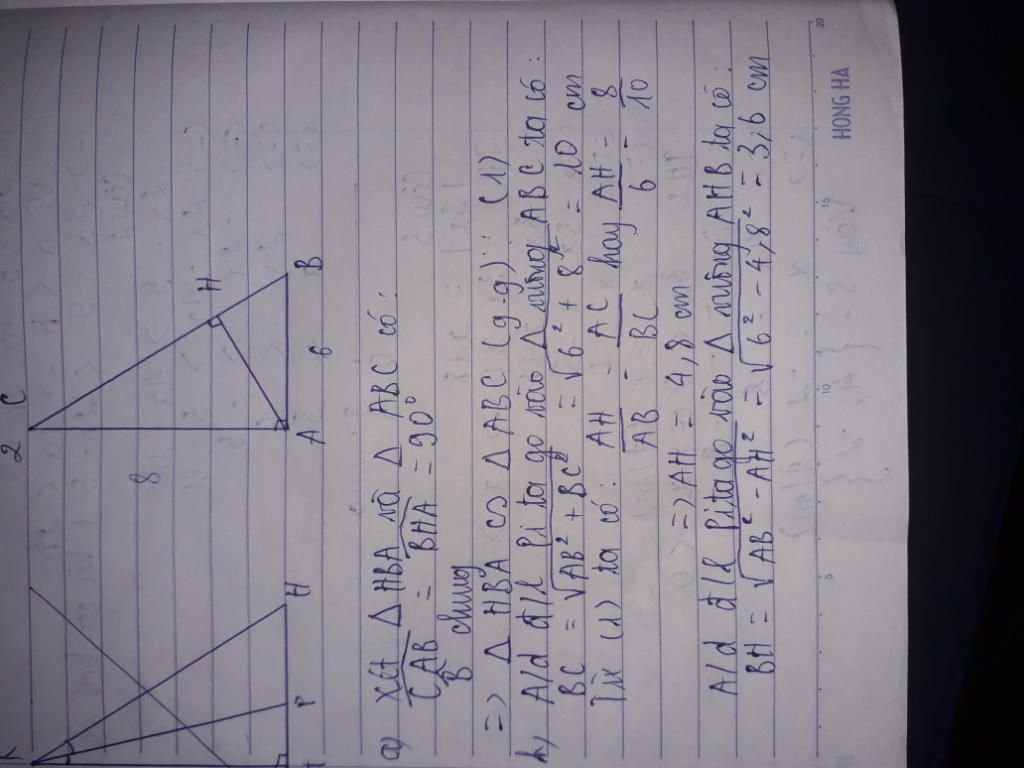 2
C
8
H
A
6
B
H
P
a) Xét Δ HBA và Δ ABC có:
CAB = BHA = 90°
B chung
=> Δ HBA ∽ Δ ABC (g.g) (1)
b, A/d đ/l Pitago vào Δ vuông ABC ta có:
BC = √AB² + BC² = √6² + 8² = 10 cm
Từ (1) ta có: AH/AB = AC/BC hay AH/6 = 8/10
=> AH = 4,8 cm
A/d đ/l Pitago vào Δ vuông AHB ta có:
BH = √AB² - AH² = √6² - 4,8² = 3,6 cm
5
10
15
20
HONG HA